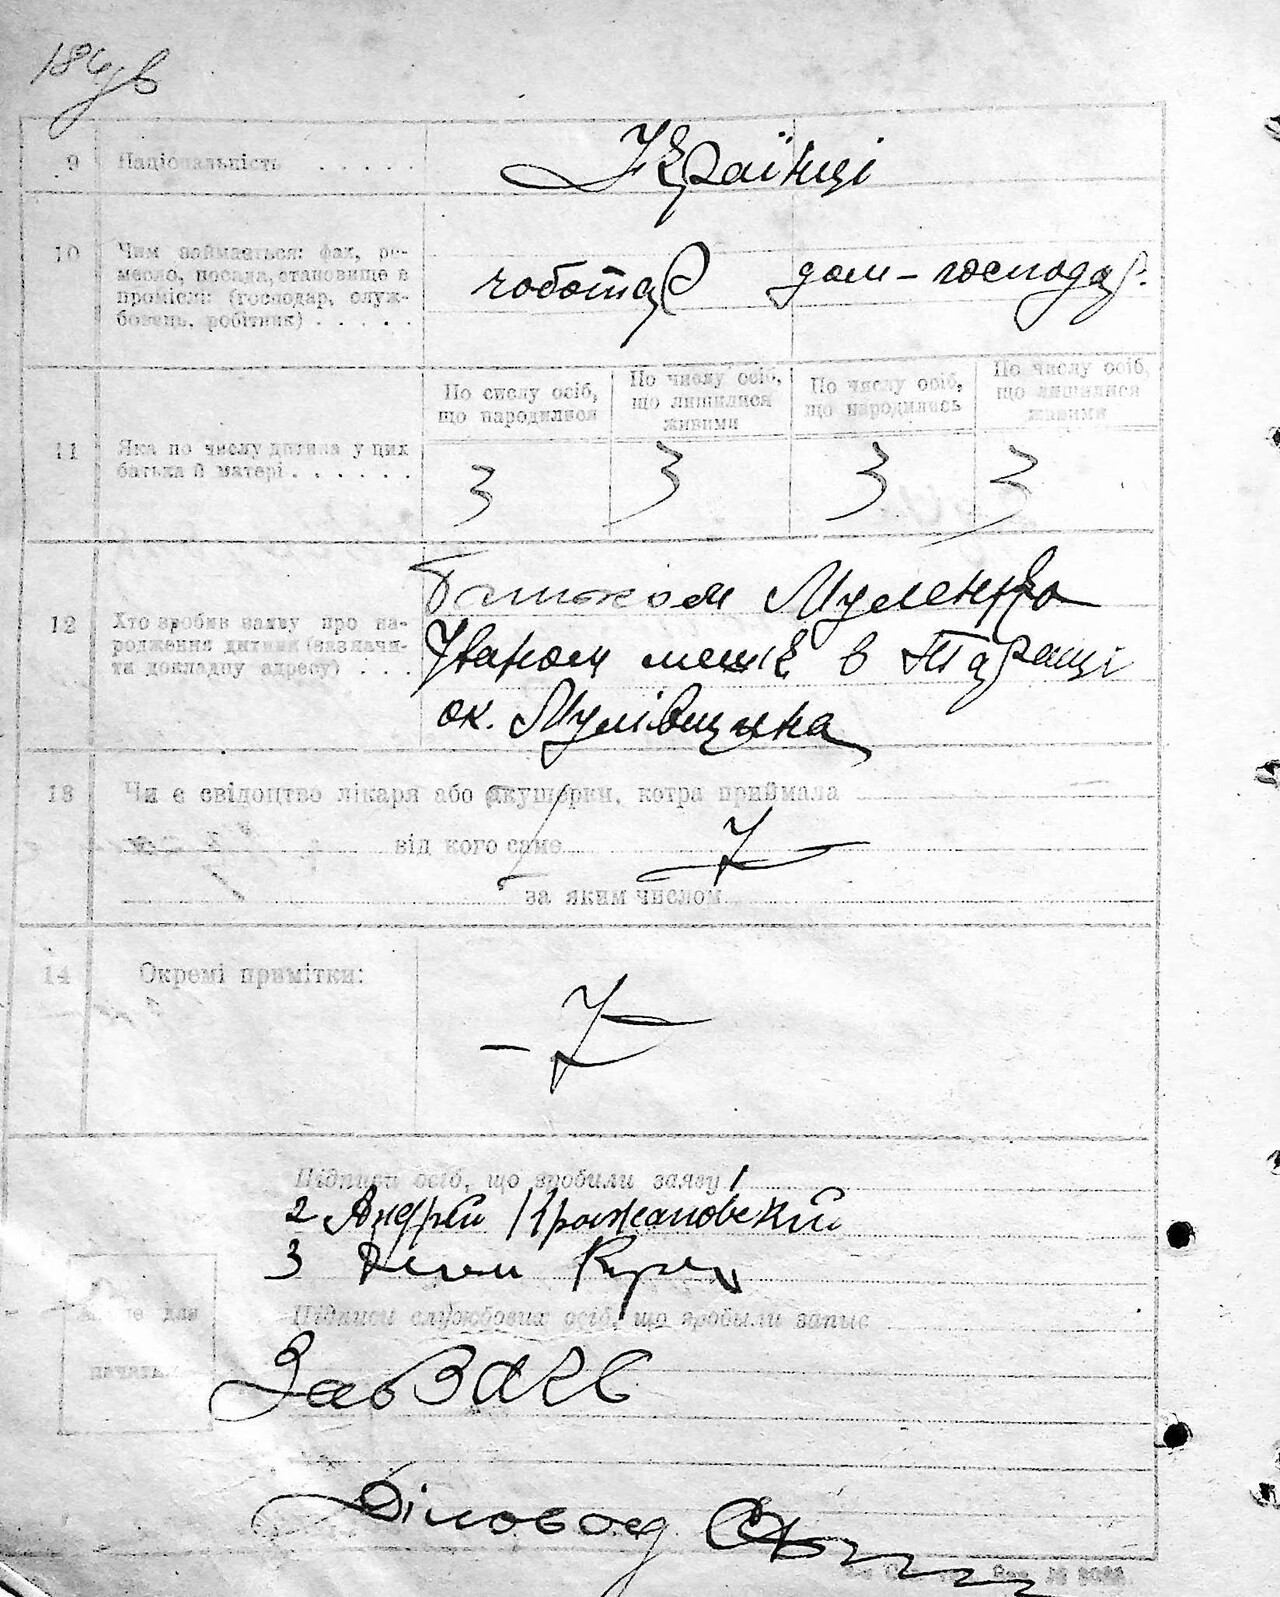 184 зв
9 Національність . . . . . Українці
10 Чим займається: фах, ре-
месло, посада, становище в
промислі: (господар, служ-
бовець, робітник) . . . . .
чоботар дом-господар.
По числу осіб, що народилися
По числу осіб, що лишилися живими
По числу осіб, що народились
По числу осіб, що лишилися живими
11 Яка по числу дитина у цих
батька й матері . . . . . .
3 3 3 3
12 Хто зробив заяву про на-
родження дитини (визначи-
ти докладну адресу) . . . .
Батьком
Іваном меш. в Таращі
ок. Мулівщина
13 Чи є свідоцтво лікаря або акушерки, котра приймала
від кого саме
за яким числом
14 Окремі примітки:
Підписи осіб, що зробили заяву
2 Андрій Крыжановский
3
Підписи службових осіб, що зробили запис
Місце для
печатки
Зав ЗАГС
Діловод